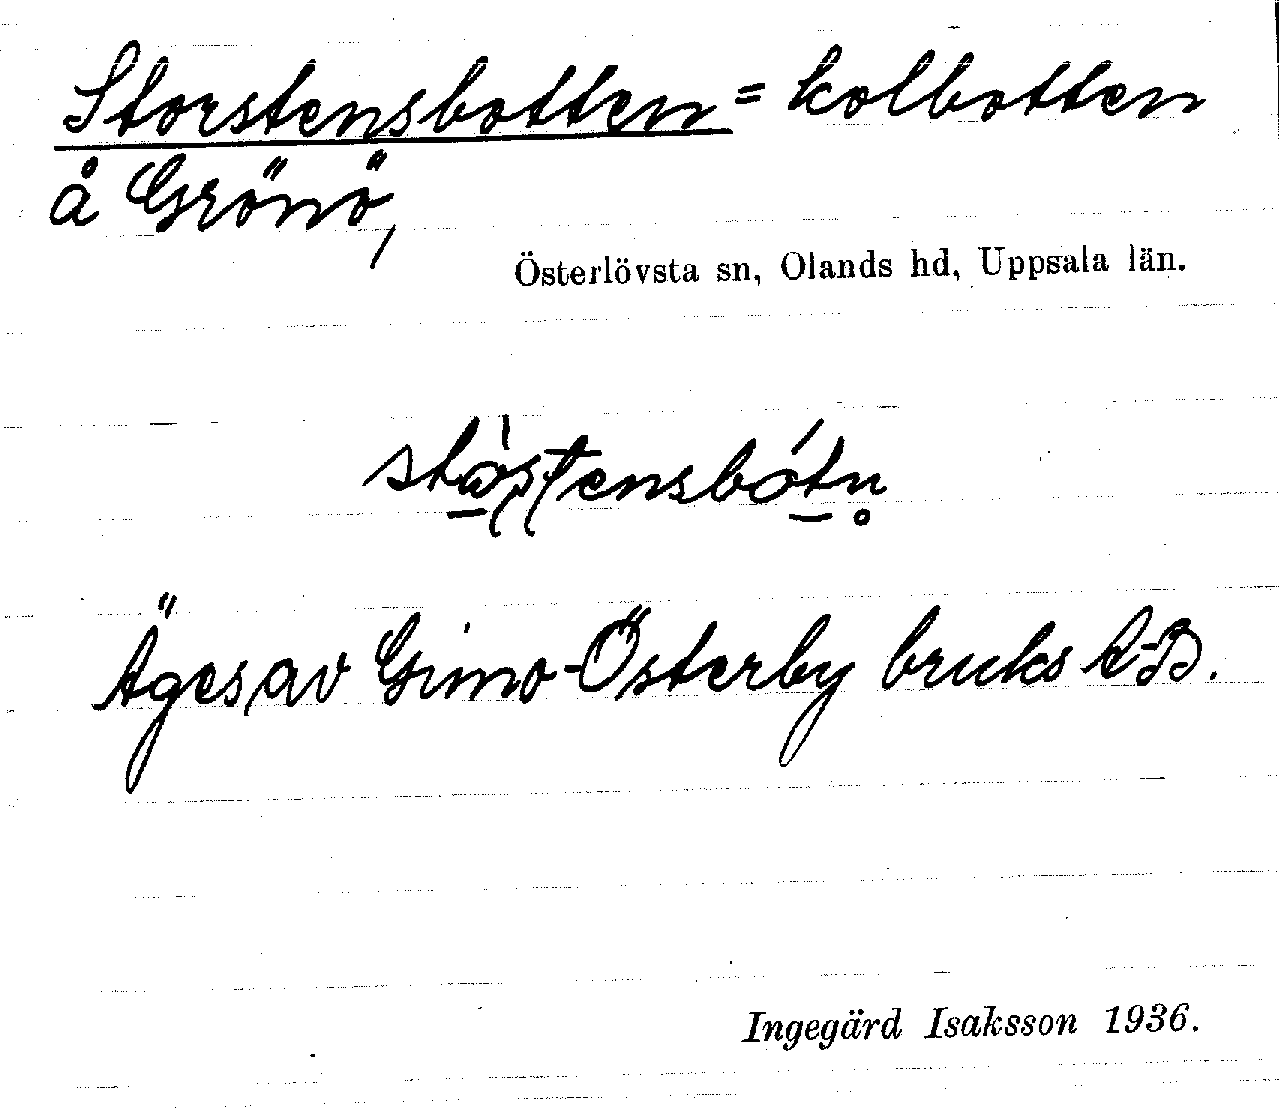 Storstensbotten = kolbotten
å Grönö,
Österlövsta sn, Olands hd, Uppsala län.
stòş̣tensbótn̥
Äges av Gimo-Österby bruks A-B.
Ingegärd Isaksson 1936.